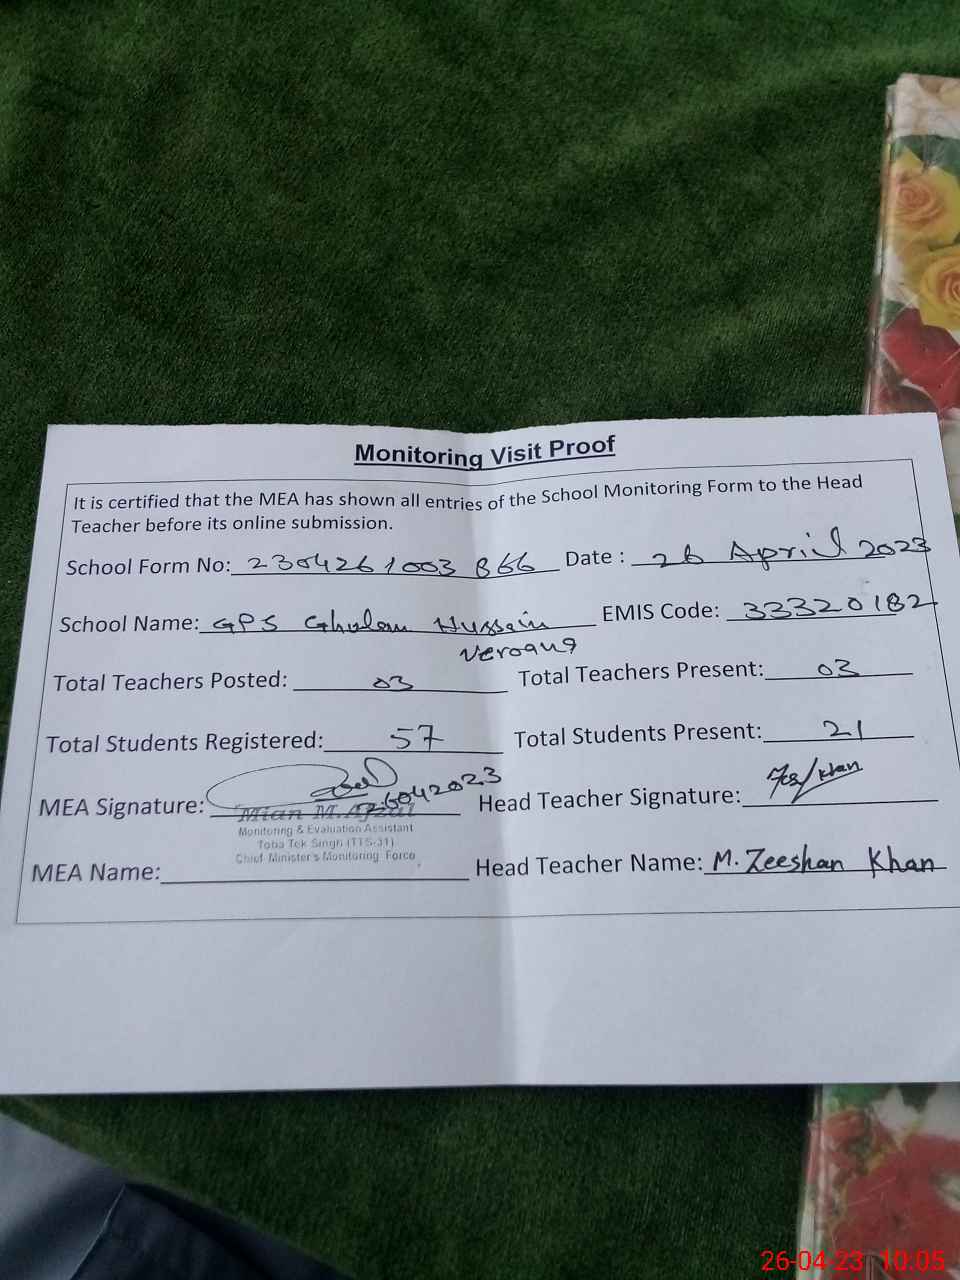 Monitoring Visit Proof
It is certified that the MEA has shown all entries of the School Monitoring Form to the Head
Teacher before its online submission.
School Form No: 2304261003 866 Date : 26 April 2023
School Name: GPS Ghulam Hussain EMIS Code: 33320182
Total Teachers Posted: 03 Total Teachers Present: 03
Total Students Registered: 57 Total Students Present: 21
MEA Signature: 26042023 Head Teacher Signature: Khan
Mian M. Afzal
Monitoring & Evaluation Assistant
Toba Tek Singh (TTS-31)
Chief Minister's Monitoring Force
MEA Name: Head Teacher Name: M. Zeeshan Khan
26-04-23 10:05